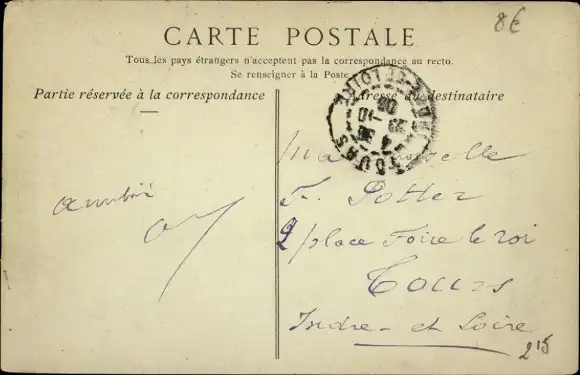 8€
CARTE POSTALE
Tous les pays étrangers n'acceptent pas la correspondance au recto.
Se renseigner à la Poste
Partie réservée à la correspondance
Adresse du destinataire
TOURS
INDRE-ET-LOIRE
Mademoiselle
F. Pottier
2 place Foire le roi
Tours
Indre - et Loire
215